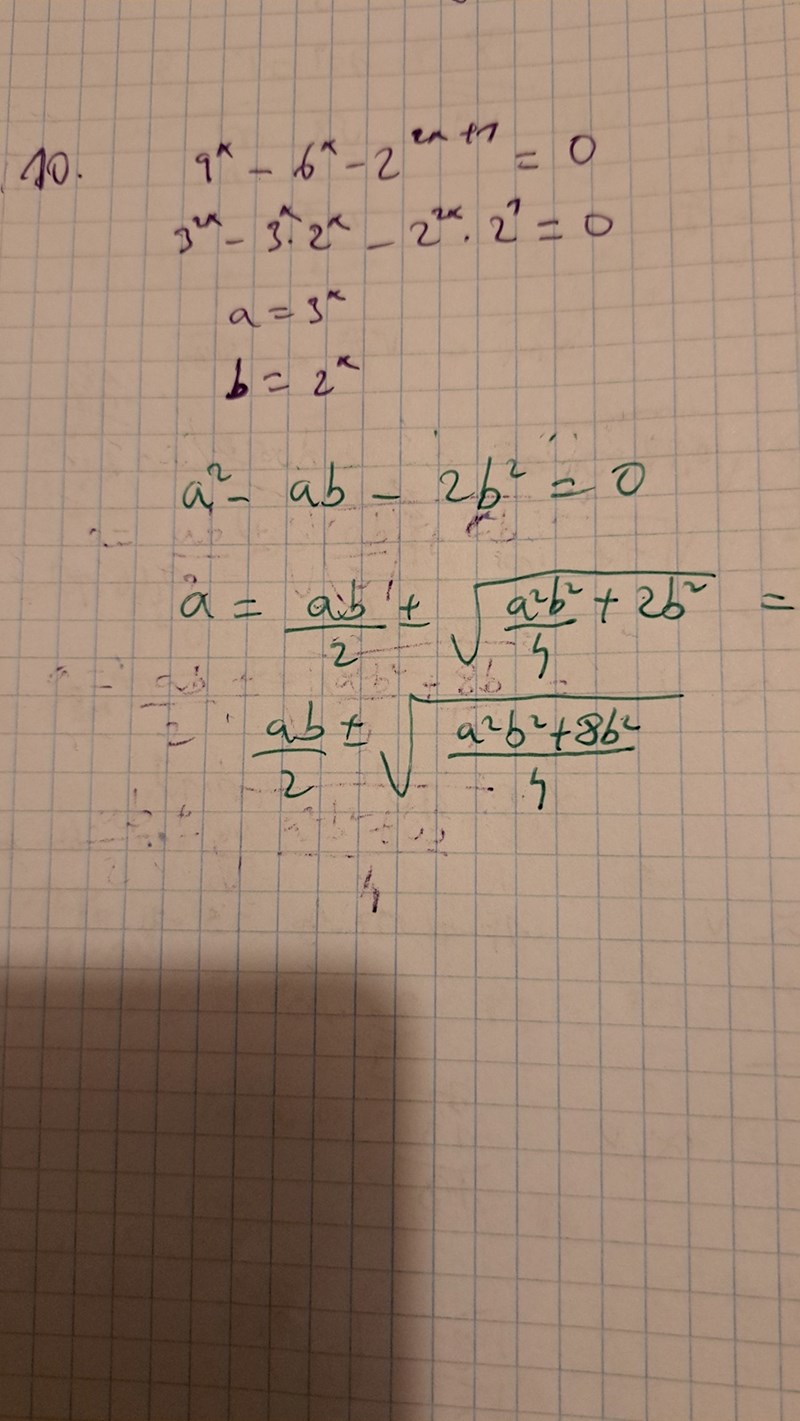 10. 9^x - 6^x - 2^(2x+1) = 0
3^(2x) - 3^x · 2^x - 2^(2x) · 2^1 = 0
a = 3^x
b = 2^x
a² - ab - 2b² = 0
a = ab/2 ± √(a²b²/4 + 2b²) =
ab/2 ± √((a²b² + 8b²)/4)